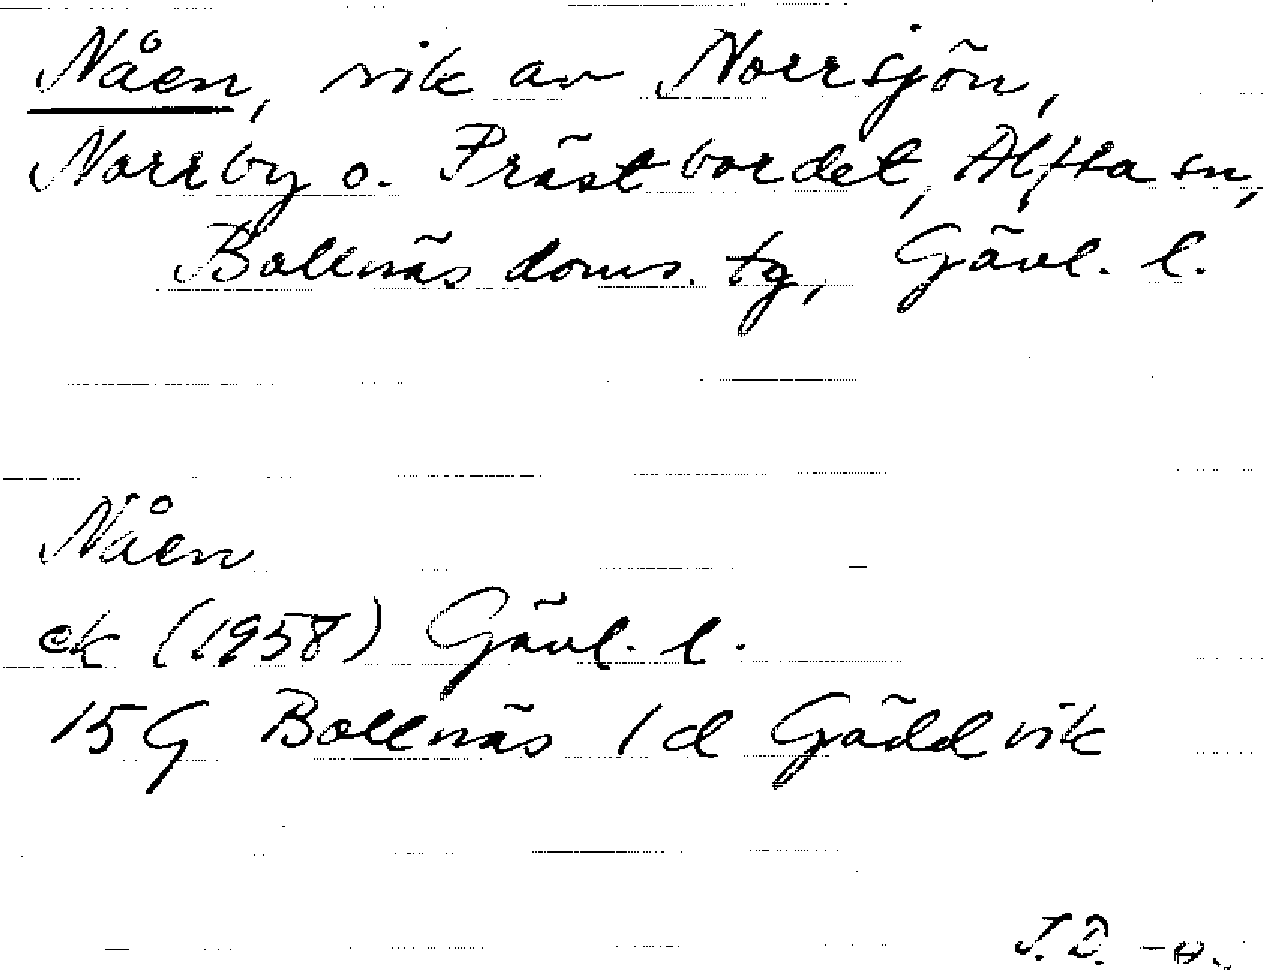 Nåen, vik av Norrsjön,
Norrby o. Prästbordet, Alfta sn,
Bollnäs doms. tg, Gävl. l.
Nåen
ek (1958) Gävl. l.
15 G Bollnäs 1 d Gäddvik